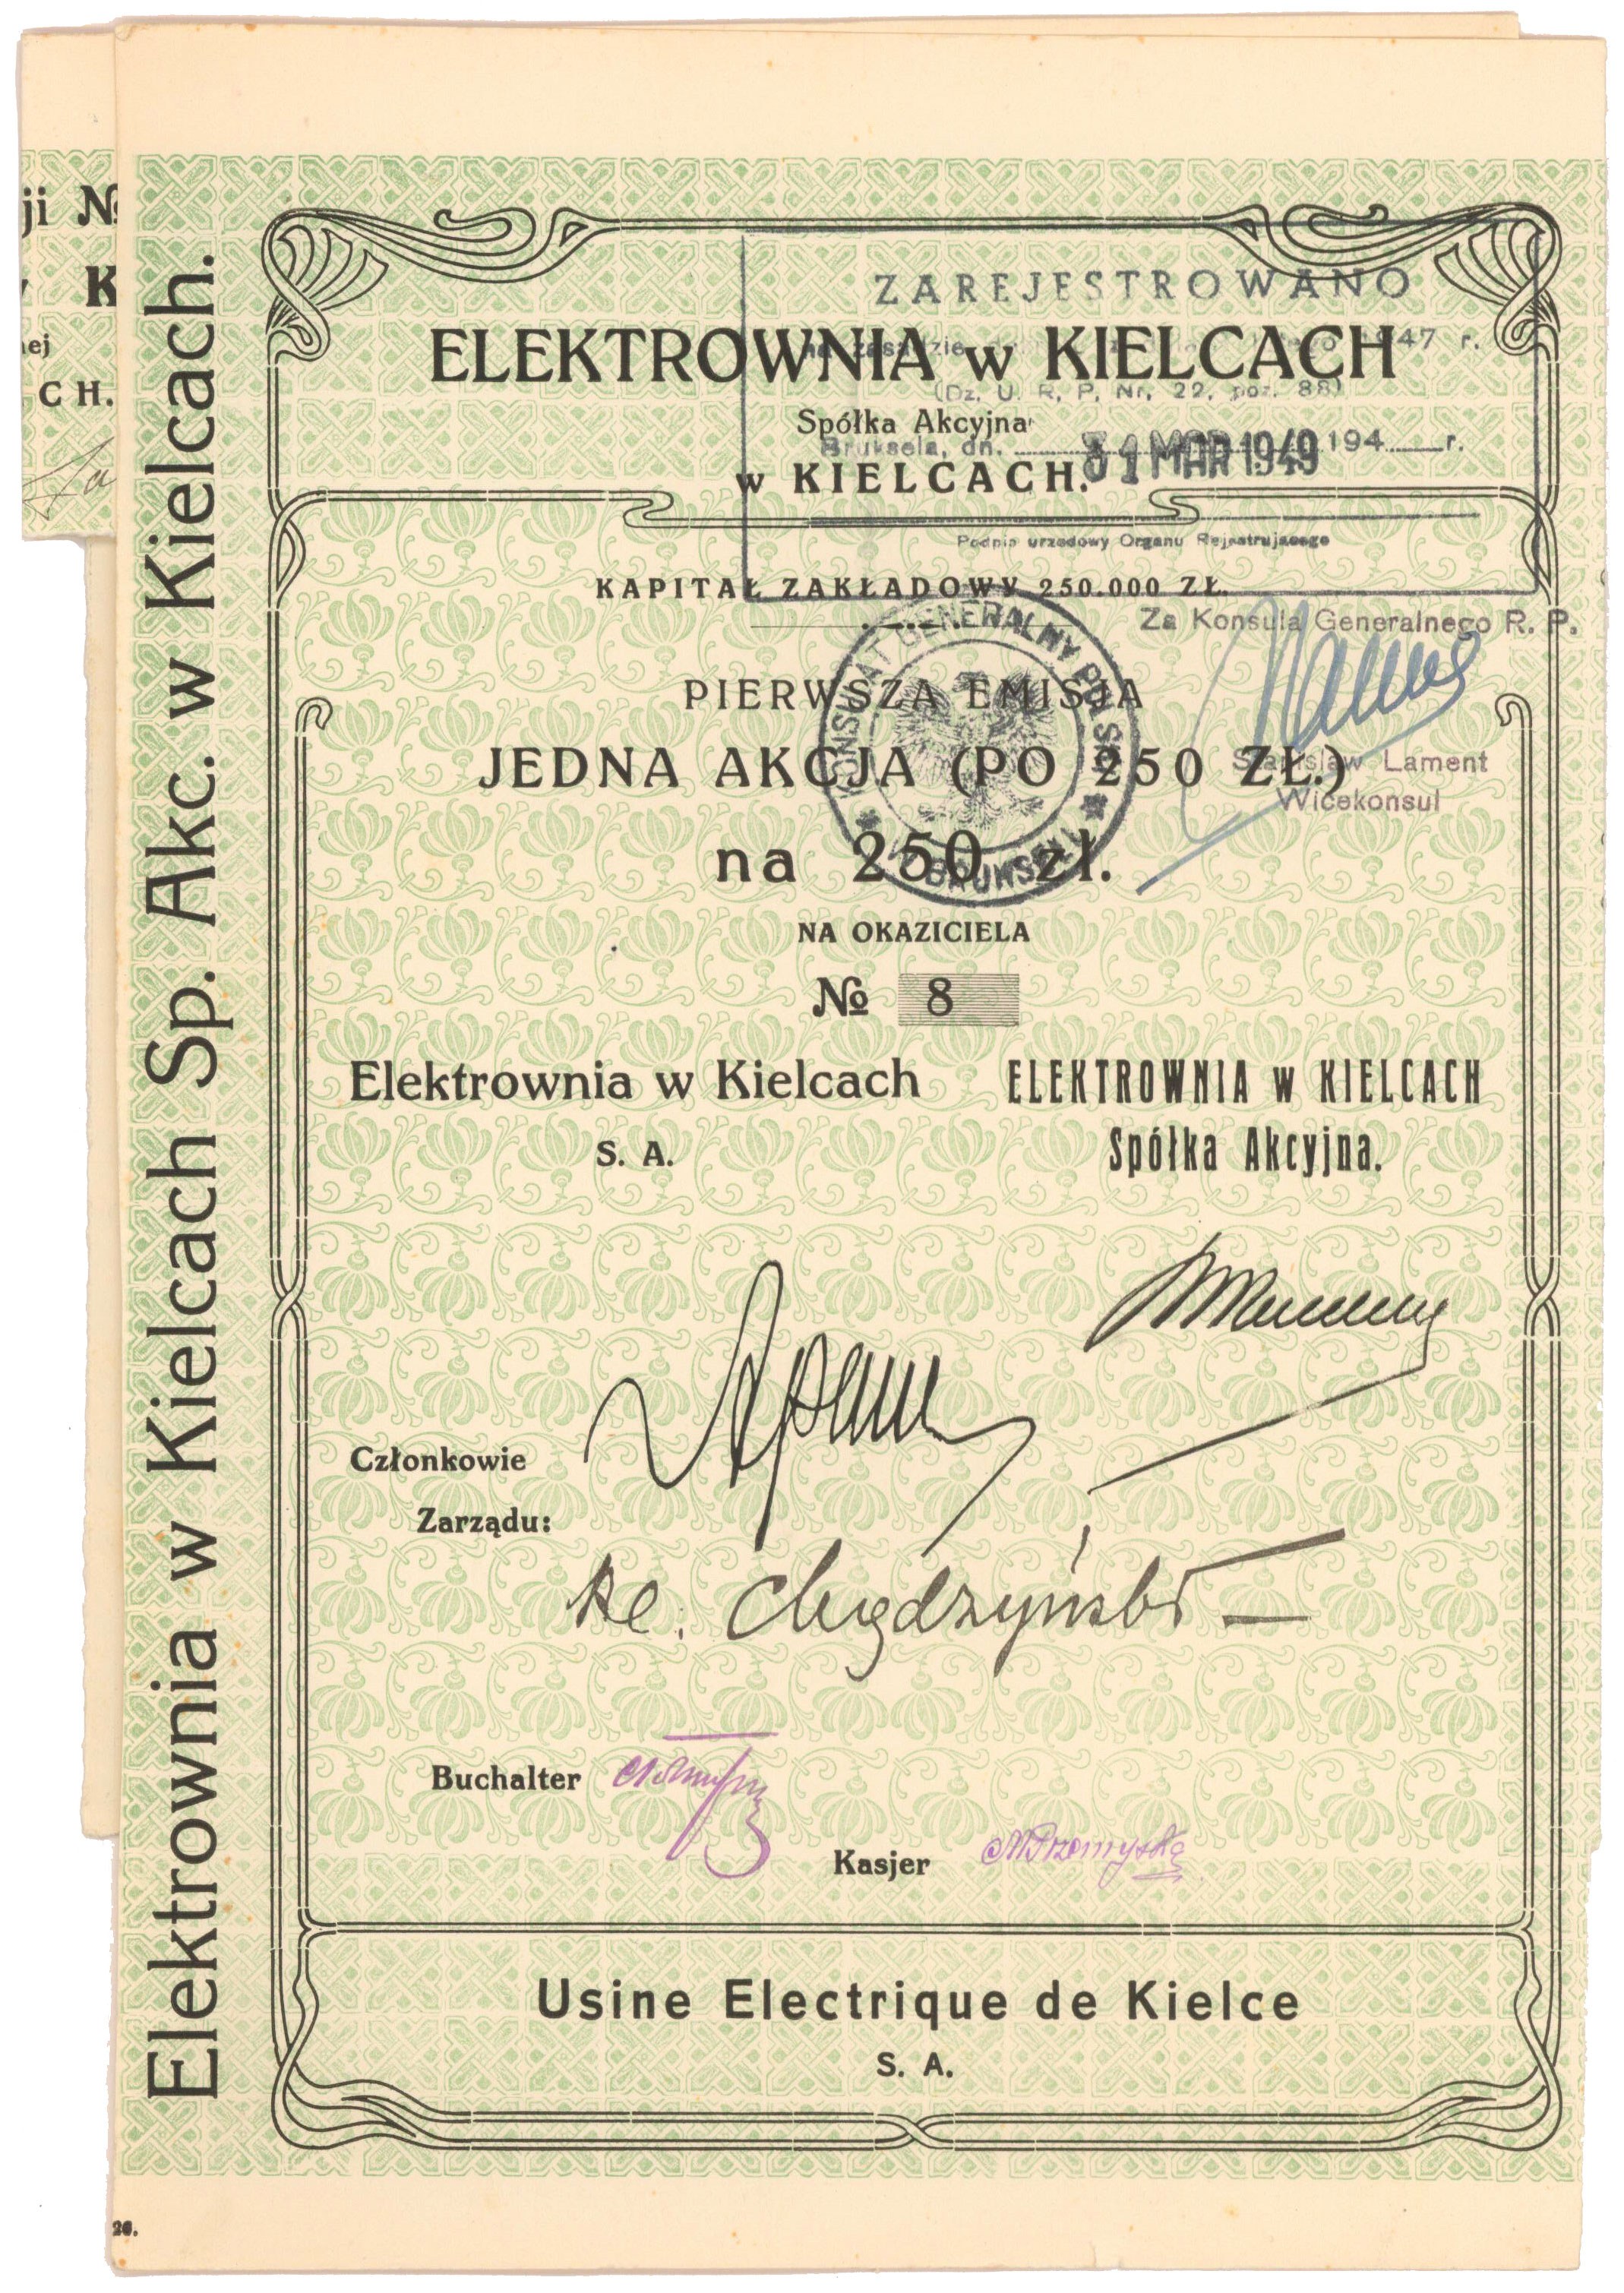 ji №
K
ej
CH.
Elektrownia w Kielcach Sp. Akc. w Kielcach.
ZAREJESTROWANO
ELEKTROWNIA w KIELCACH
na zasadzie 1947 r.
(Dz. U. R. P. Nr. 22, poz. 88)
Spółka Akcyjna
Bruksela, dn. 31 MAR 1949 194 r.
w KIELCACH.
Podpis urzędowy Organu Rejestrującego
KAPITAŁ ZAKŁADOWY 250.000 ZŁ.
Za Konsula Generalnego R. P.
KONSULAT GENERALNY POLSKI
BRUKSELI
PIERWSZA EMISJA
JEDNA AKCJA (PO 250 ZŁ.)
Stanisław Lament
Wicekonsul
na 250 zł.
NA OKAZICIELA
№ 8
Elektrownia w Kielcach
S. A.
ELEKTROWNIA w KIELCACH
Spółka Akcyjna.
Członkowie
Zarządu:
Buchalter
Kasjer
Usine Electrique de Kielce
S. A.
26.